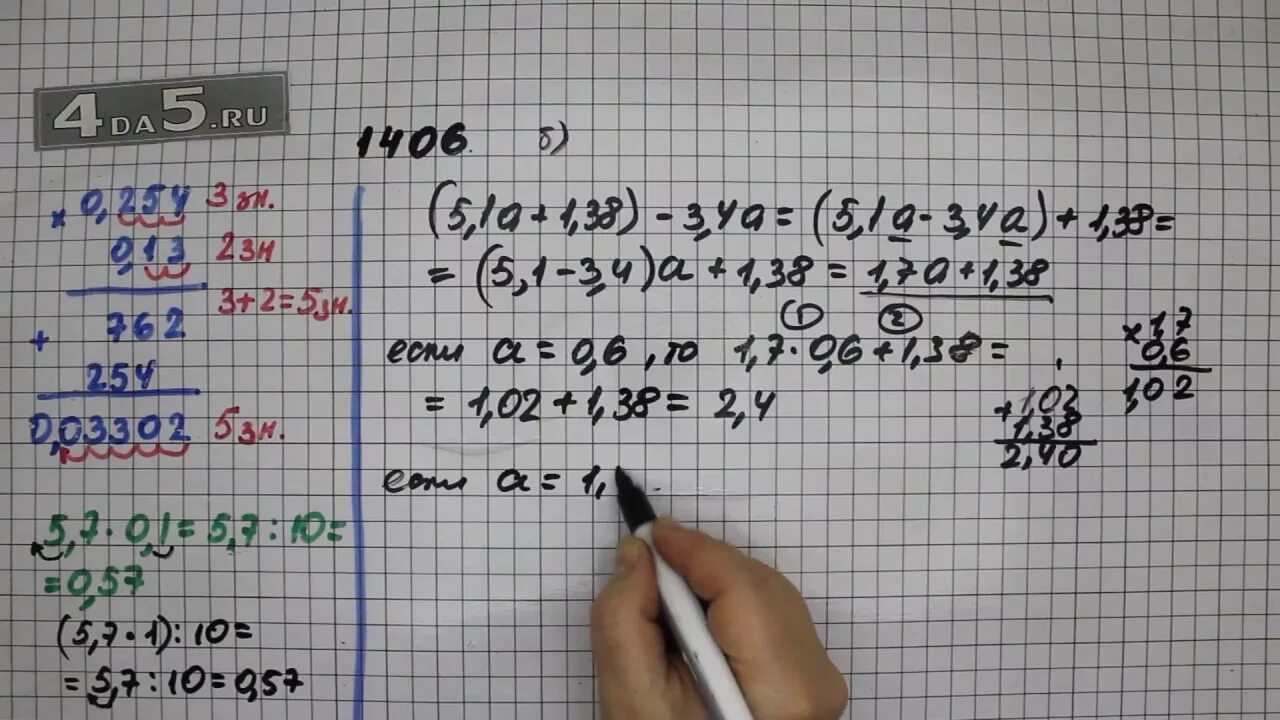 4DA5.RU
1406. б)
× 0,254 3 зн.
0,13 2 зн
3+2=5 зн.
+ 762
254
0,03302 5 зн.
5,7 · 0,1 = 5,7 : 10 =
= 0,57
(5,7 · 1) : 10 =
= 5,7 : 10 = 0,57
(5,1a + 1,38) - 3,4a = (5,1a - 3,4a) + 1,38 =
= (5,1 - 3,4)a + 1,38 = 1,7a + 1,38
1 2
если a = 0,6, то 1,7 · 0,6 + 1,38 =
= 1,02 + 1,38 = 2,4
если a = 1,
× 1,7
0,6
1,02
+ 1,02
1,38
2,40